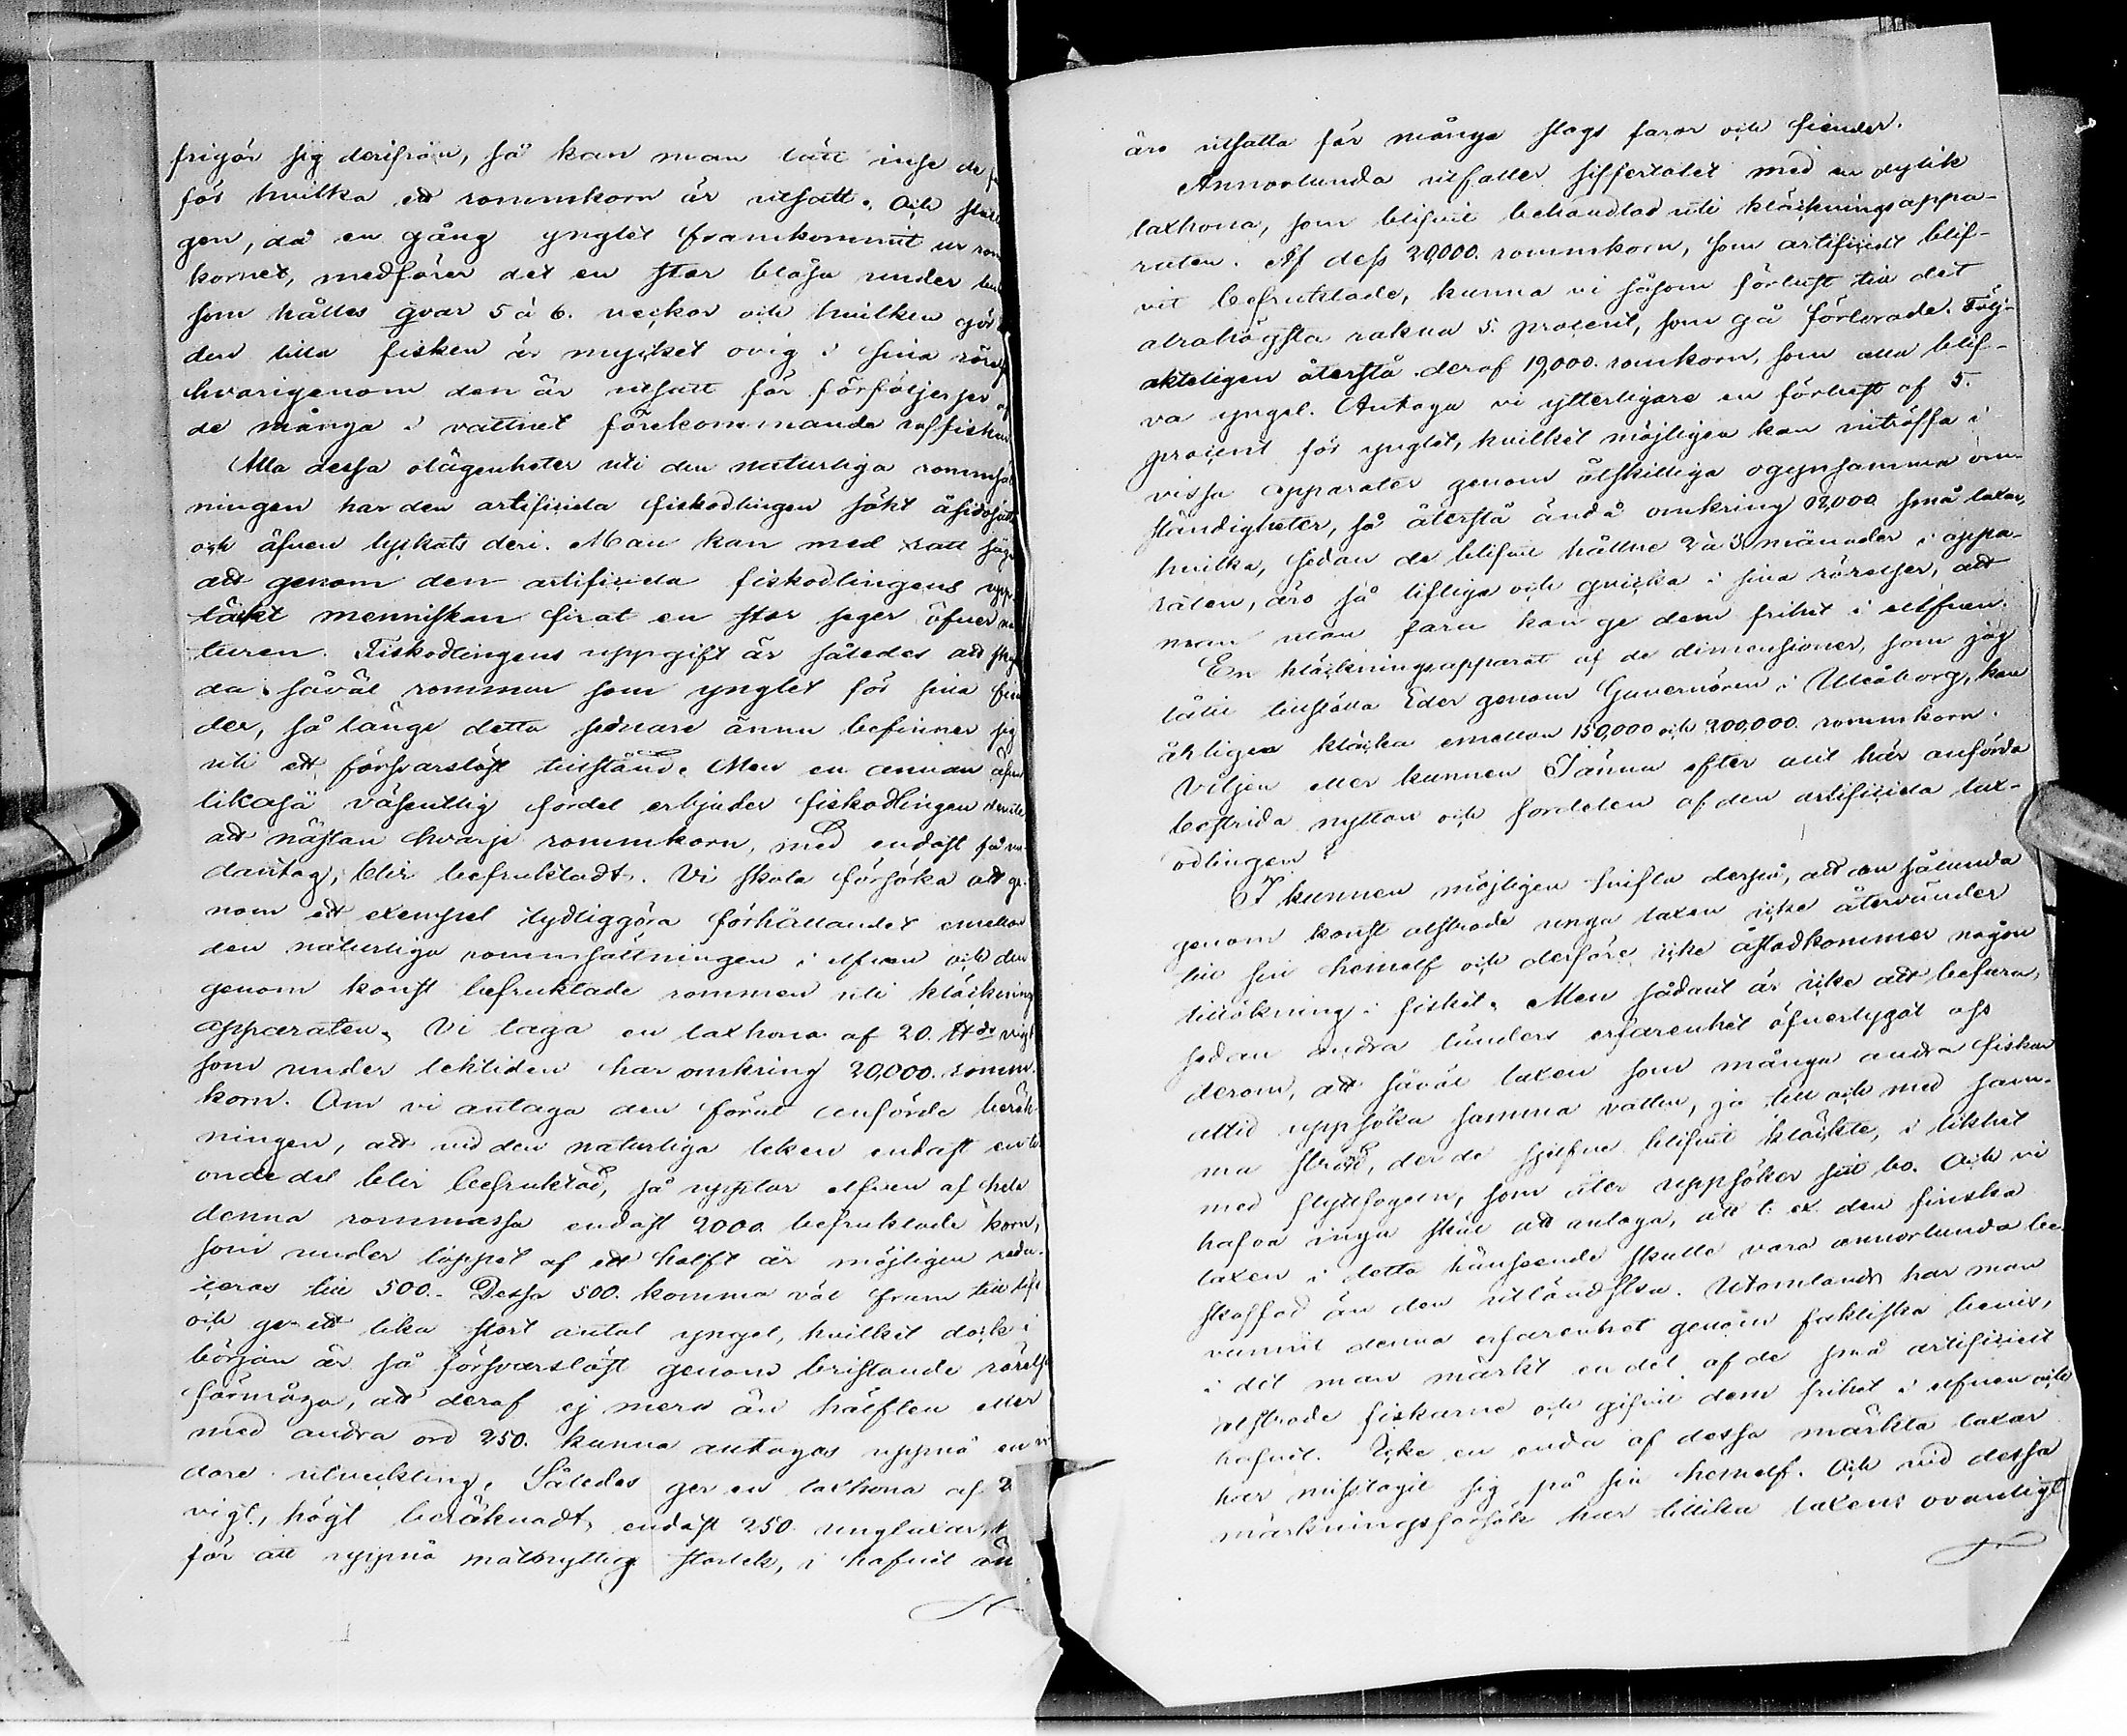 frigör sig derifrån, så kan man lätt inse de
för hvilka ett rommkorn är utsatt. Och
gen, då en gång ynglet framkommit ur rom
kornet, medförer det en stor blåsa under
som hålles qvar 5 à 6. veckor och hvilken gör
den lilla fisken är mycket ovig i sina rörel
hvarigenom den är utsatt för förföljelser af
de många i vattnet förekommande roffiskar
Alla dessa olägenheter uti den naturliga rommsätt
ningen har den artificiela fiskodlingen sökt åsidosätta
och äfven lyckats deri. Man kan med rätt säga
att genom den artificiela fiskodlingens upp-
täckt menniskan firat en stor seger öfver na
turen. Fiskodlingens uppgift är således att skyd
da såväl rommen som ynglet för sina fien
der, så länge detta sednare ännu befinner sig
uti ett försvarslöst tillstånd. Men en annan äfven
likaså väsentlig fördel erbjuder fiskodlingen deruti
att nästan hvarje rommkorn, med endast få un-
dantag, blir befruktadt. Vi skola försöka att ge-
nom ett exempel tydliggöra förhållandet emellan
den naturliga rommsättningen i elfven och den
genom konst befruktade rommen uti kläcknings
apparaten. Vi taga en laxhona af 20. ℔ds vigt
som under lektiden har omkring 20,000. romm-
korn. Om vi antaga den förut anförda beräk-
ningen, att vid den naturliga leken endast en ti
onde del blir befruktad, så upptar elfven af hela
denna rommassa endast 2000. befruktade korn,
som under loppet af ett halft år möjligen redu-
ceras till 500. Dessa 500. komma väl fram till lif
och ge ett lika stort antal yngel, hvilket dock i
början är så försvarslöst genom bristande rörelse
förmåga, att deraf ej mera än hälften eller
med andra ord 250. kunna antagas uppnå en vi
dare utveckling. Således ger en laxhona af 2
vigt, högt beräknadt, endast 250 unglaxar,
för att uppnå matnyttig storlek, i hafvet än
äro utsatta för många slags faror och fiender.
Annorlunda utfaller siffertalet med en dylik
laxhona, som blifvit behandlad uti kläckningsappa-
raten. Af dess 20,000. rommkorn, som artificielt blif-
vit befruktade, kunna vi såsom förlust till det
alrahögsta räkna 5. procent, som gå förlorade. Följ-
akteligen återstå deraf 19,000. romkorn, som alla blif-
va yngel. Antaga vi ytterligare en förlust af 5.
procent för ynglet, hvilket möjligen kan inträffa i
vissa apparater genom åtskilliga ogynsamma om-
ständigheter, så återstå ändå omkring 18,000 små laxar,
hvilka, sedan de blifvit hållne 2 à 3 månader i appa-
raten, äro så lifliga och qvicka i sina rörelser, att
man utan fara kan ge dem frihet i elfven.
En kläckningsapparat af de dimensioner, som jag
låtit tillställa Eder genom Guvernören i Uleåborg, kan
årligen kläcka emellan 150,000 och 200,000 rommkorn.
Viljen eller kunnen I ännu efter allt här anförda
bestrida nyttan och fördelen af den artificiela lax-
odlingen?
I kunnen möjligen tvifla derpå, att den sålunda
genom konst alstrade unga laxen icke återvänder
till sin hemelf och derföre icke åstadkommer någon
tillökning i fisket. Men sådant är icke att befara,
sedan andra länders erfarenhet öfvertygat oss
derom, att såväl laxen som många andra fiskar
alltid uppsöka samma vatten, ja till och med sam-
ma strand, der de sjelfve blifvit kläckte, i likhet
med flyttfogeln, som åter uppsöker sitt bo. Och vi
hafva inga skäl att antaga, att t. ex. den finska
laxen i detta hänseende skulle vara annorlunda be-
skaffad än den utländska. Utomlands har man
vunnit denna erfarenhet genom faktiska bevis,
i det man märkt en del af de små artificielt
alstrade fiskarne och gifvit dem frihet i elfven och
hafvet. Icke en enda af dessa märkta laxar
har misstagit sig på sin hemelf. Och vid dessa
märkningsförsök har tillika laxens ovanligt